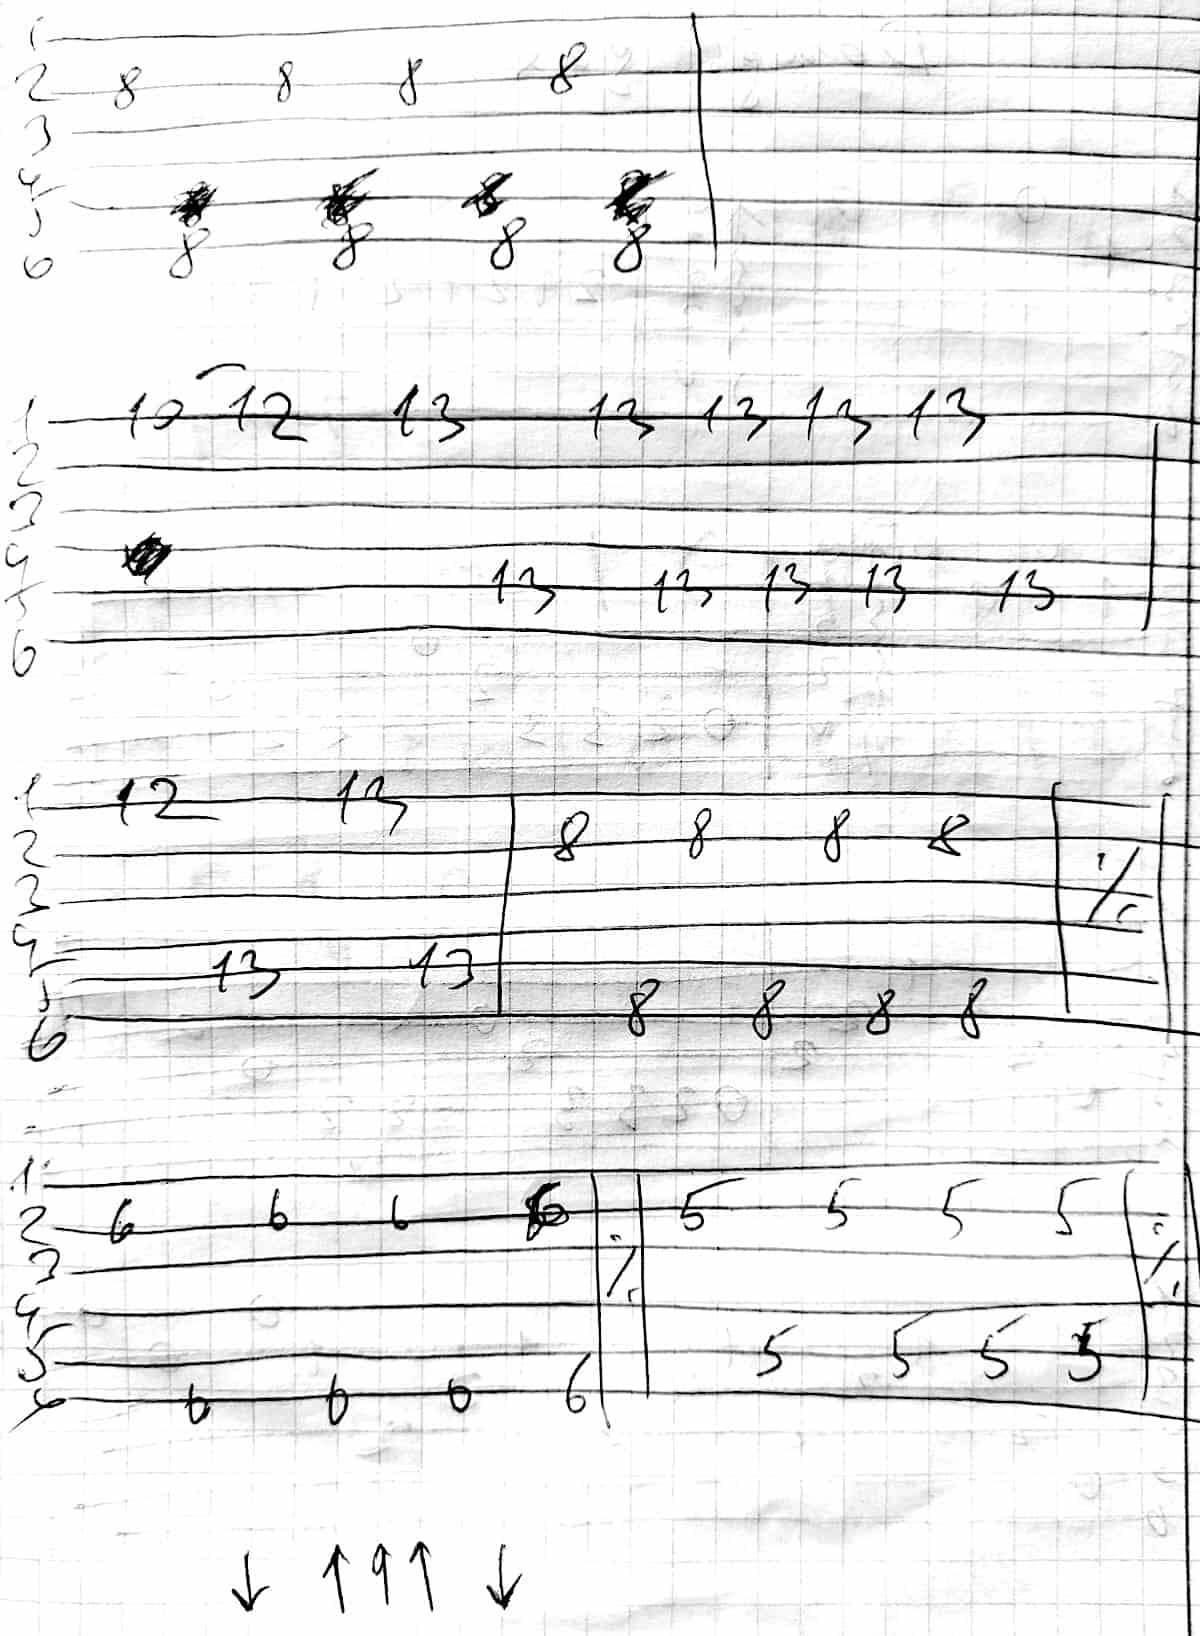 1
2 8 8 8 8
3
4
5
6 8 8 8 8
1 10 12 13 13 13 13 13
2
3
4
5 13 13 13 13 13
6
1 12 13
2 8 8 8 8
3 %
4
5 13 13
6 8 8 8 8
1
2 6 6 6 6 5 5 5 5
3 % %
4
5 5 5 5 5
6 6 6 6 6
↓ ↑ ↑ ↑ ↓